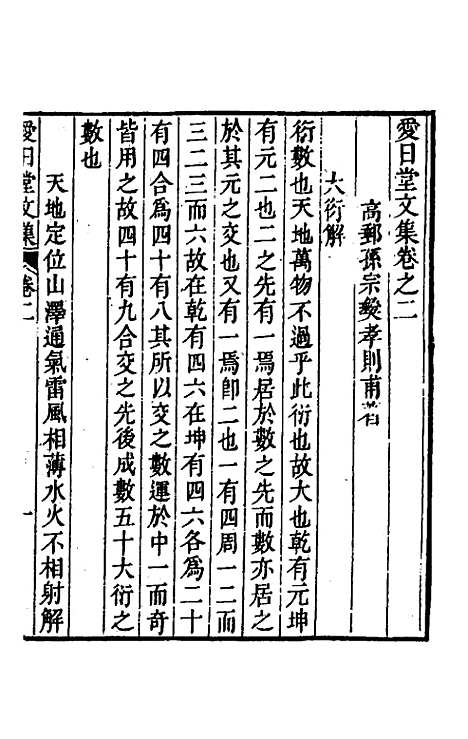 愛日堂文集卷之二
高郵孫宗彝孝則甫著
大衍解
衍數也天地萬物不過乎此衍也故大也乾有元坤
有元二也二之先有一焉居於數之先而數亦居之
於其元之交也又有一焉卽二也一有四周一二而
三二三而六故在乾有四六在坤有四六各爲二十
有四合爲四十有八其所以交之數運於中一而奇
皆用之故四十有九合交之先後成數五十大衍之
數也
天地定位山澤通氣雷風相薄水火不相射解
愛日堂文集 卷二 一